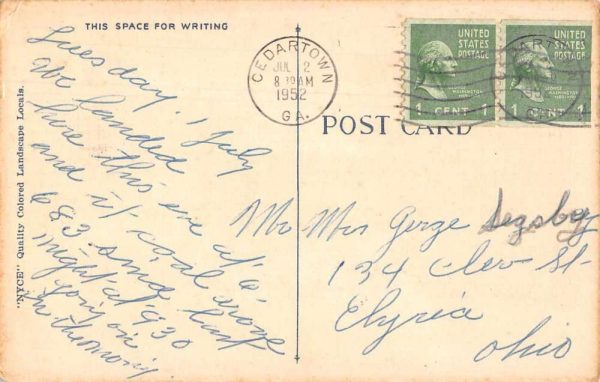 THIS SPACE FOR WRITING
"NYCE" Quality Colored Landscape Locals.
Tuesday, 1 July
We landed
here this eve at 6.
and it cool drove
683 since last
night at 930
going on
in the morning
CEDARTOWN
JUL 2
8 30 AM
1952
GA.
UNITED
STATES
POSTAGE
GEORGE
WASHINGTON
1 CENT 1
UNITED
STATES
POSTAGE
GEORGE
WASHINGTON
1 CENT 1
POST CARD
Mr Mrs
134 Clev St-
Elyria
Ohio